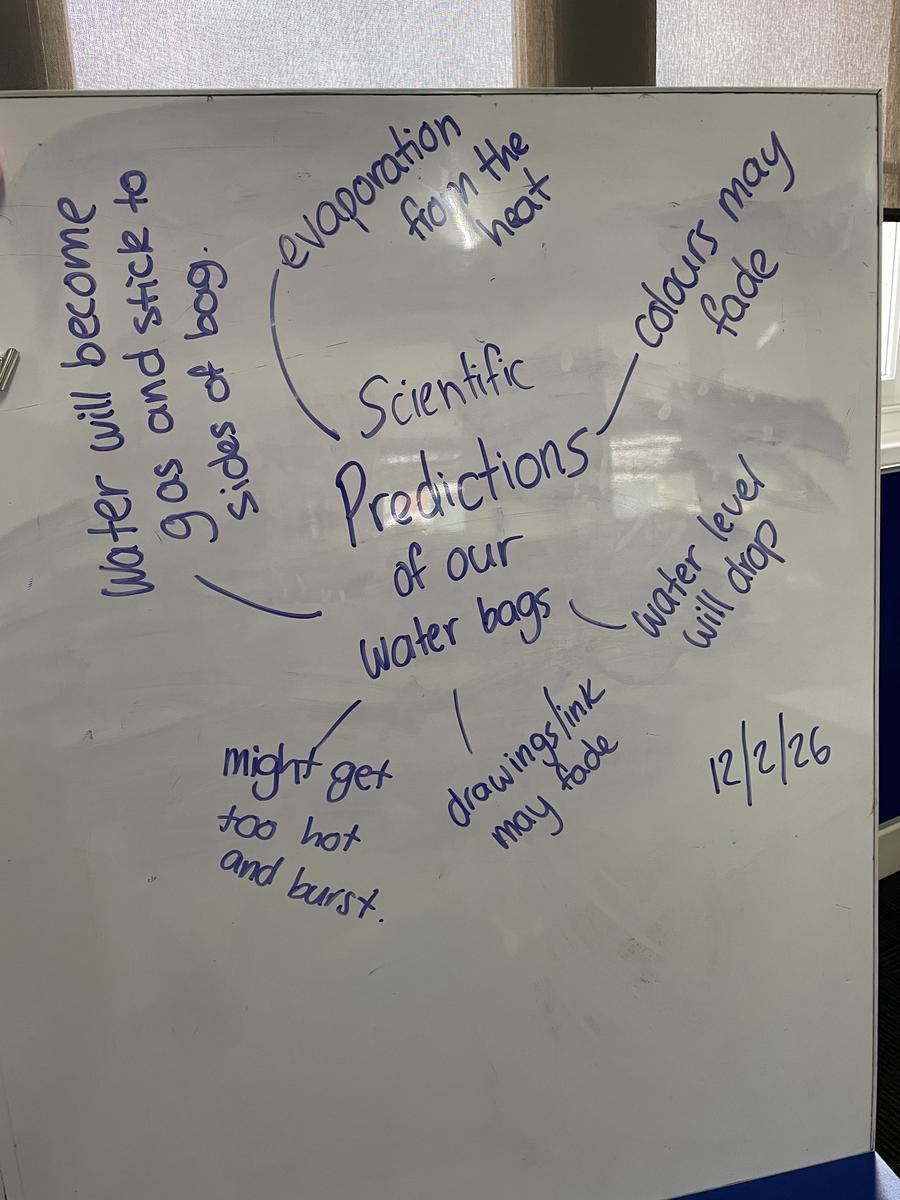 Scientific
Predictions
of our
water bags
evaporation
from the
heat
colours may
fade
water level
will drop
drawings/ink
may fade
might get
too hot
and burst.
Water will become
gas and stick to
sides of bag.
12/2/26